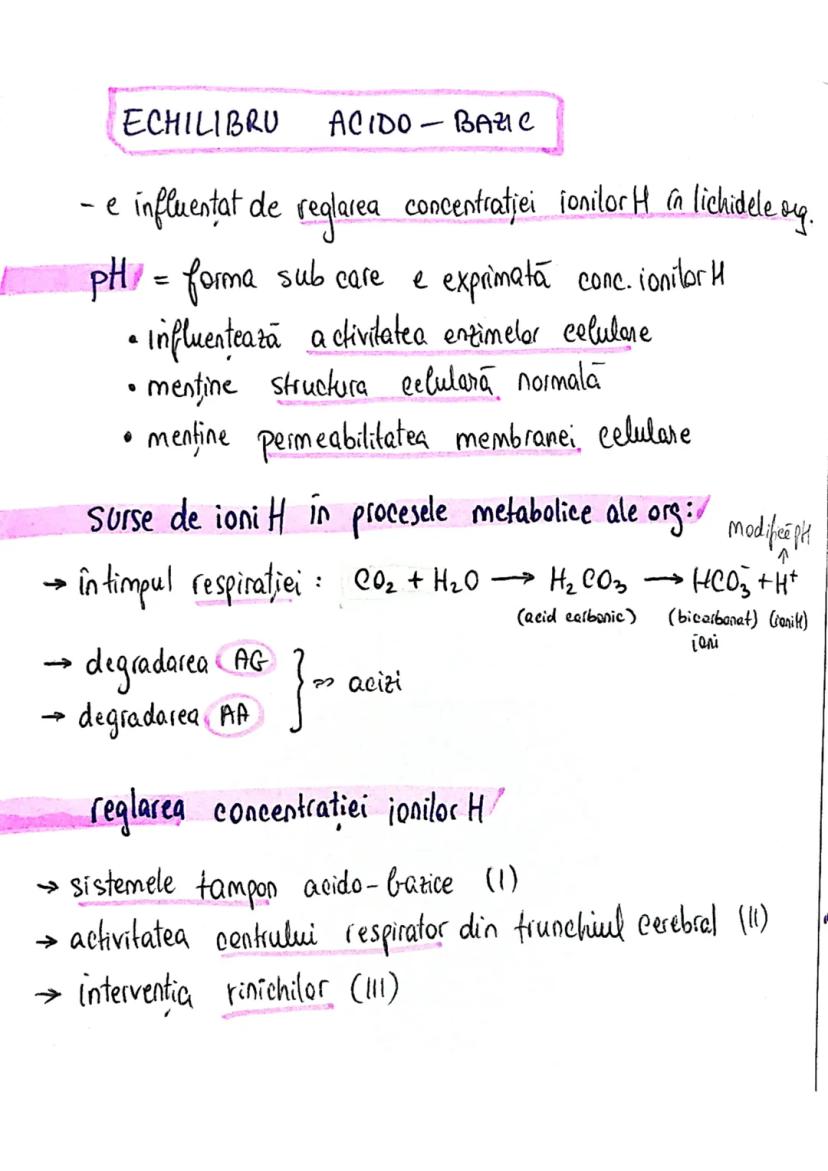 ECHILIBRU ACIDO - BAZIC
- e influențat de reglarea concentrației ionilor H în lichidele org.
pH = forma sub care e exprimată conc. ionilor H
• influențează activitatea enzimelor celulare
• menține structura celulară normală
• menține permeabilitatea membranei celulare
surse de ioni H în procesele metabolice ale org:
modifică pH
↑
→ în timpul respirației : CO₂ + H₂O → H₂CO₃ → HCO₃⁻ + H⁺
(acid carbonic) (bicarbonat) (ioni H)
ioni
→ degradarea AG
} ⇒ acizi
→ degradarea AA
reglarea concentrației ionilor H
→ sistemele tampon acido-bazice (I)
→ activitatea centrului respirator din trunchiul cerebral (II)
→ intervenția rinichilor (III)